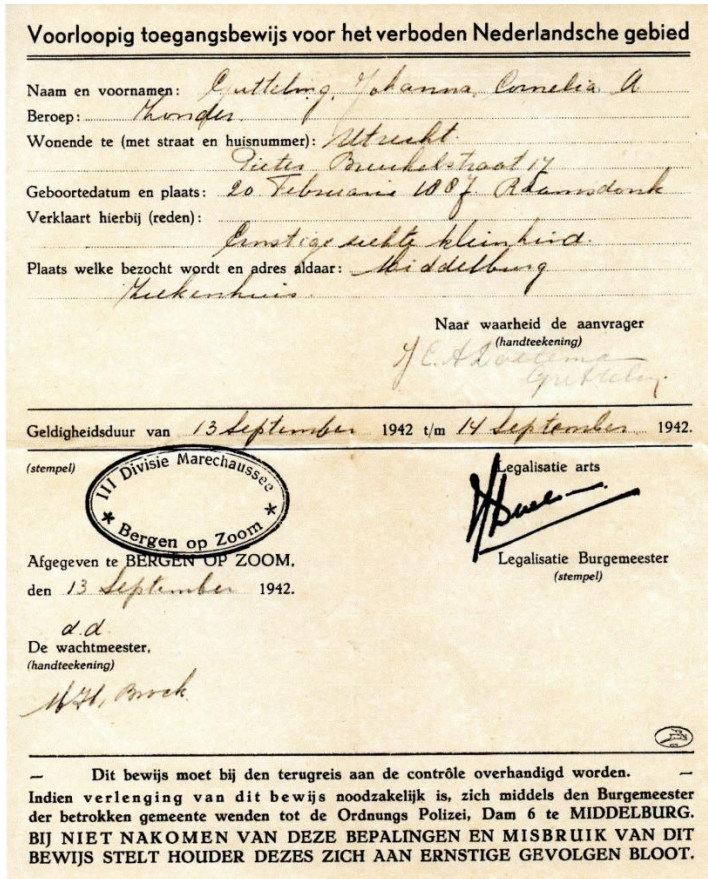 Voorloopig toegangsbewijs voor het verboden Nederlandsche gebied
Naam en voornamen: Gutteling, Johanna, Cornelia A
Beroep: Zonder.
Wonende te (met straat en huisnummer): Utrecht.
Pieter Breughelstraat 17
Geboortedatum en plaats: 20 Februarie 1887 Raamsdonk
Verklaart hierbij (reden):
Ernstige ziekte kleinkind.
Plaats welke bezocht wordt en adres aldaar: Middelburg
Ziekenhuis.
Naar waarheid de aanvrager
(handteekening)
J C A
Gutteling
Geldigheidsduur van 13 September 1942 t/m 14 September 1942.
(stempel)
III Divisie Marechaussee
★ Bergen op Zoom ★
Legalisatie arts
Afgegeven te BERGEN OP ZOOM,
den 13 September 1942.
Legalisatie Burgemeester
(stempel)
d.d.
De wachtmeester,
(handteekening)
Broek
— Dit bewijs moet bij den terugreis aan de contrôle overhandigd worden. —
Indien verlenging van dit bewijs noodzakelijk is, zich middels den Burgemeester
der betrokken gemeente wenden tot de Ordnungs Polizei, Dam 6 te MIDDELBURG.
BIJ NIET NAKOMEN VAN DEZE BEPALINGEN EN MISBRUIK VAN DIT
BEWIJS STELT HOUDER DEZES ZICH AAN ERNSTIGE GEVOLGEN BLOOT.